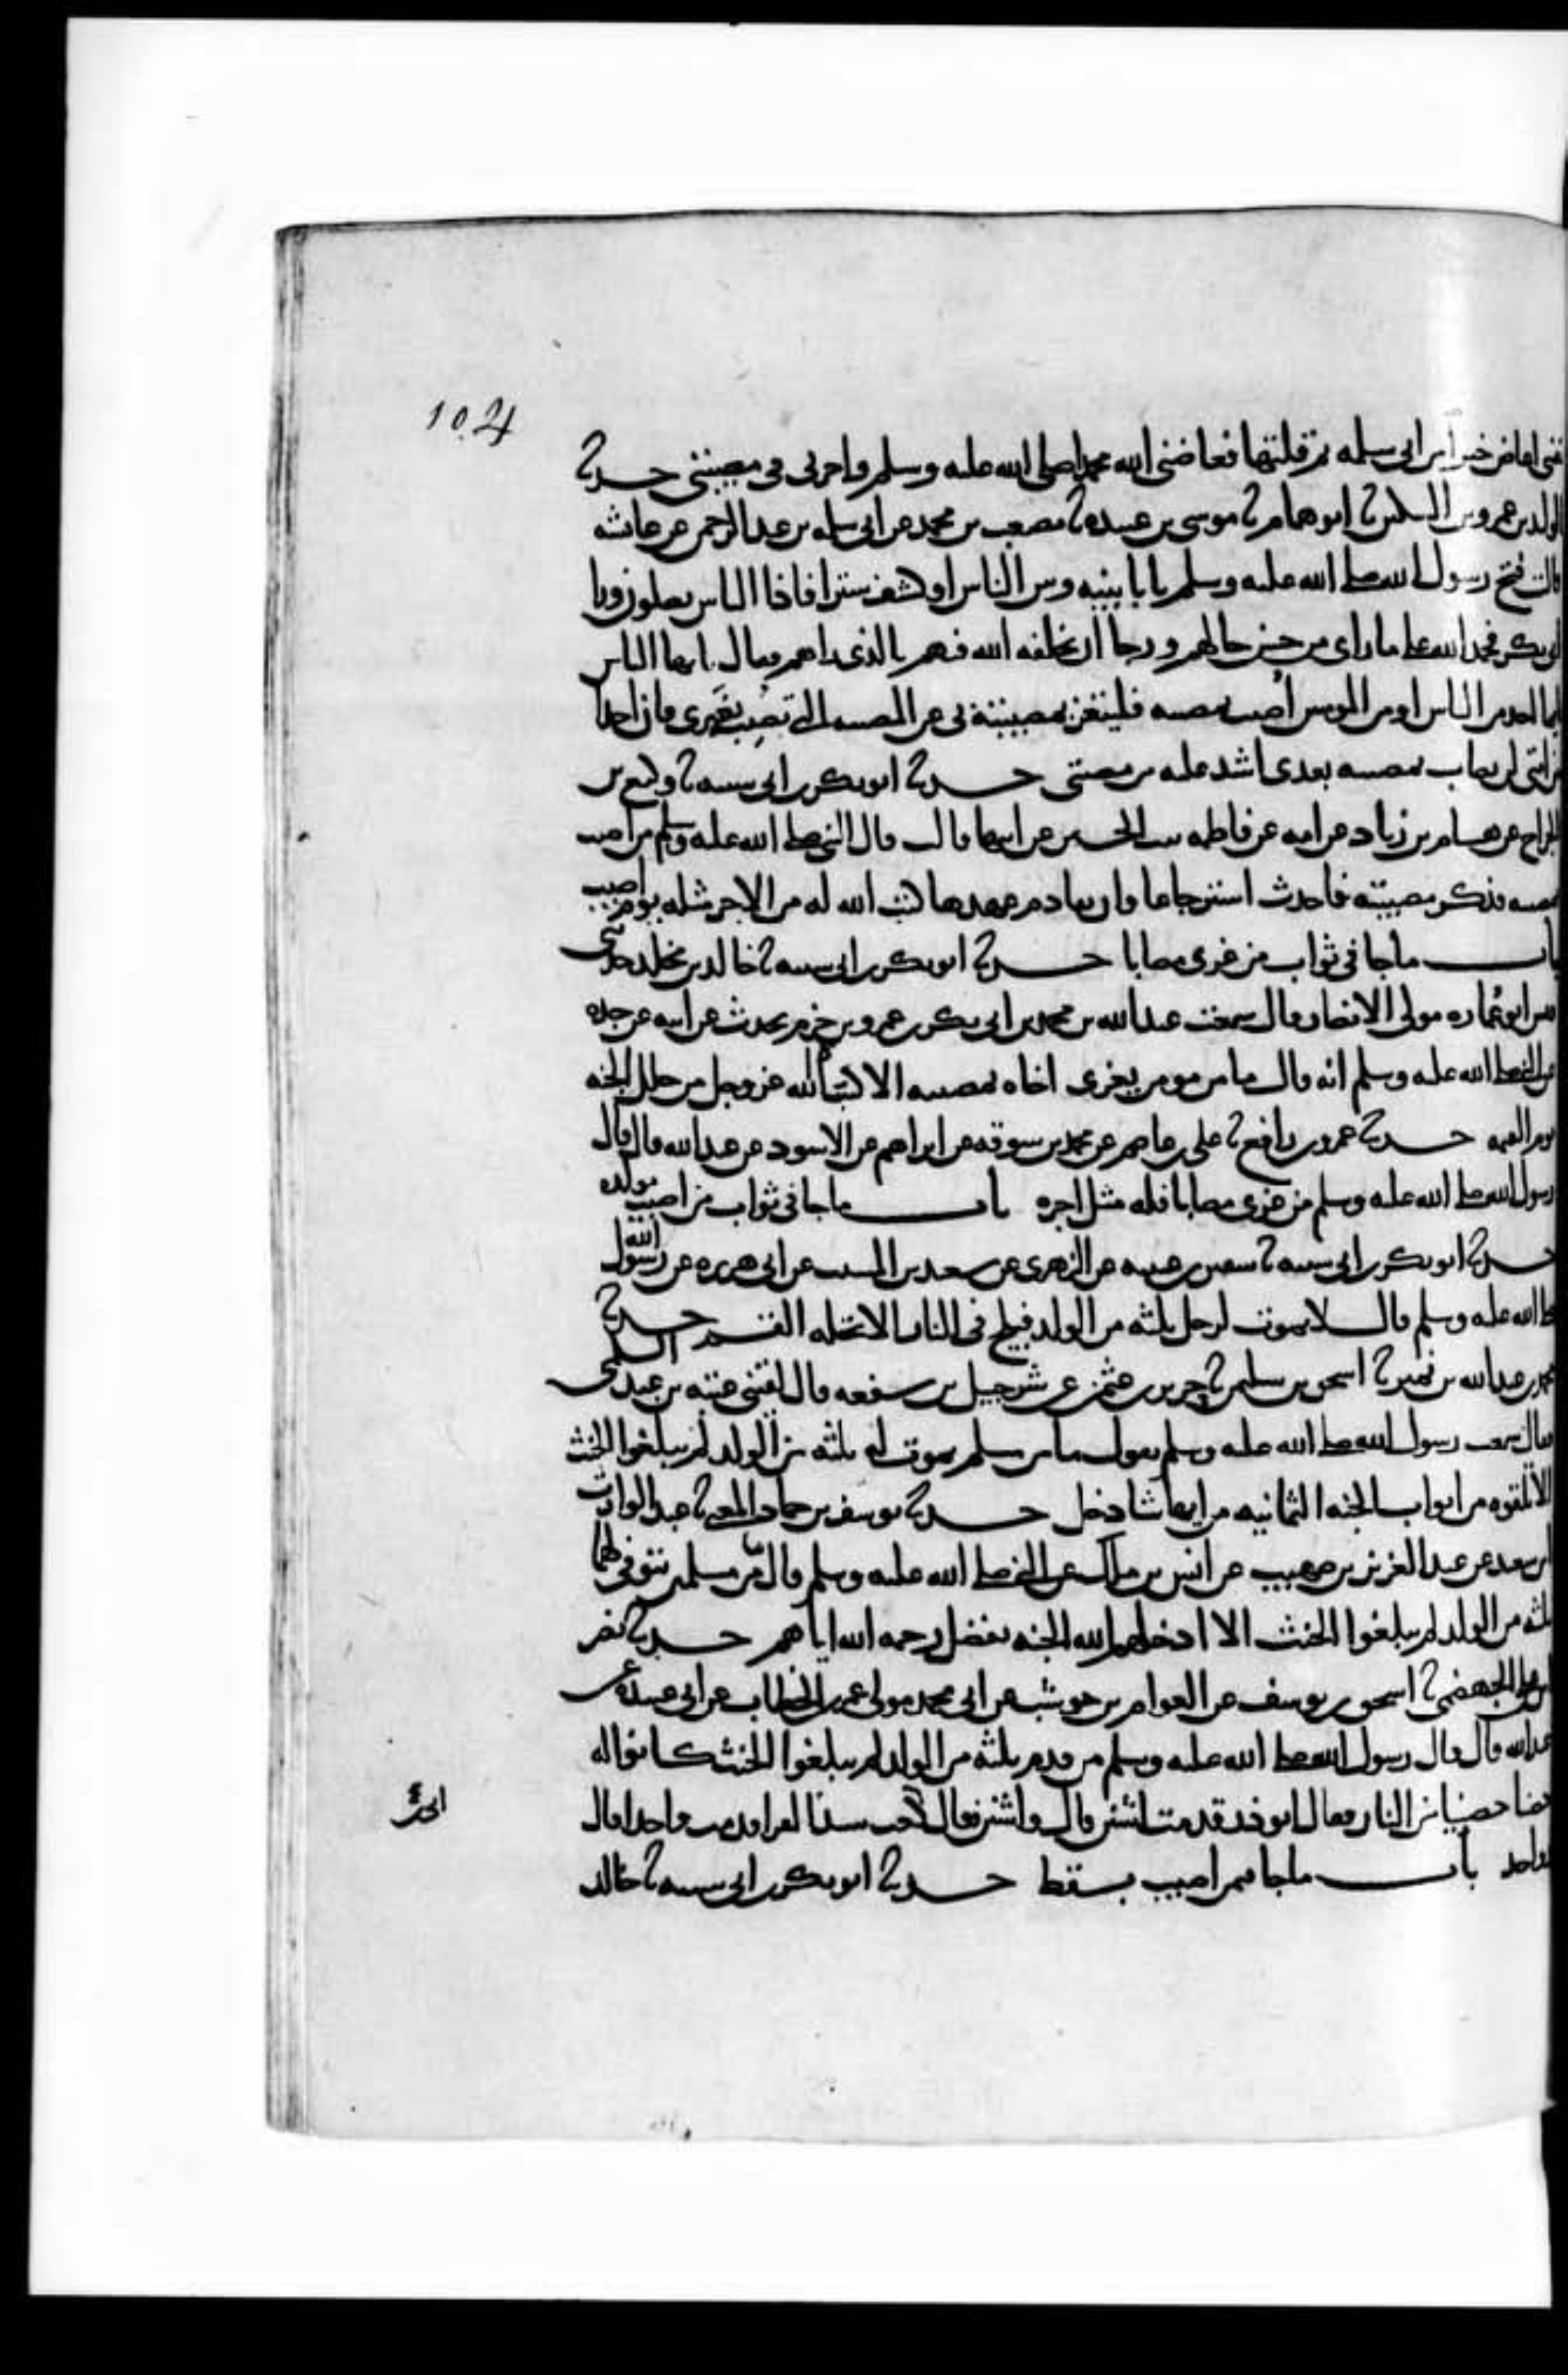 104
اعاض خيرا من ابى سلمه ثم قلتها فعاضنى الله محمدا صلى الله عليه وسلم واجرنى فى مصيبتى حدثنا
الوليد بن عمرو بن السكين ثنا ابو همام ثنا موسى بن عبيده ثنا مصعب بن محمد عن ابى سلمه بن عبد الرحمن عن عائشه
قالت فتح رسول الله صلى الله عليه وسلم بابا بينه وبين الناس او كشف سترا فاذا الناس يصلون ورا
ابى بكر فحمد الله على ما راى من حسن حالهم ورجا ان يخلفه الله فيهم بالذى راهم فقال يا ايها الناس
ايما احد من الناس او من المومنين اصيب بمصيبه فليتعز بمصيبته بى عن المصيبه التى تصيبه بغيرى فان احدا
من امتى لن يصاب بمصيبه بعدى اشد عليه من مصيبتى حدثنا ابو بكر بن ابى شيبه ثنا وكيع بن
الجراح عن هشام بن زياد عن امه عن فاطمه بنت الحسين عن ابيها قالت قال النبى صلى الله عليه وسلم من اصيب
بمصيبه فذكر مصيبته فاحدث استرجاعا وان تقادم عهدها كتب الله له من الاجر مثله يوم اصيب
باب ما جا فى ثواب من عزى مصابا حدثنا ابو بكر بن ابى شيبه ثنا خالد بن مخلد حدثنى
قيس ابو عماره مولى الانصار قال سمعت عبد الله بن محمد بن ابى بكر بن عمرو بن حزم يحدث عن ابيه عن جده
عن النبى صلى الله عليه وسلم انه قال ما من مومن يعزى اخاه بمصيبه الا كساه الله عز وجل من حلل الجنه
يوم القيمه حدثنا عمرو بن رافع ثنا على بن عاصم عن محمد بن سوقه عن ابراهيم عن الاسود عن عبد الله قال قال
رسول الله صلى الله عليه وسلم من عزى مصابا فله مثل اجره باب ما جا فى ثواب من اصيب بولده
حدثنا ابو بكر بن ابى شيبه ثنا سفين بن عيينه عن الزهرى عن سعيد بن المسيب عن ابى هريره عن رسول الله
صلى الله عليه وسلم قال لا يموت لرجل ثلثه من الولد فيلج فى النار الا تحله القسم حدثنا
محمد بن عبد الله بن نمير ثنا اسحق بن سليمن ثنا حريز بن عثمن عن شرحبيل بن شفعه قال لقينى عتبه بن عبد السلمى
فقال سمعت رسول الله صلى الله عليه وسلم يقول ما من مسلم يموت له ثلثه من الولد لم يبلغوا الحنث
الا تلقوه من ابواب الجنه الثمانيه من ايها شا دخل حدثنا يوسف بن حماد المعنى ثنا عبد الوارث
بن سعيد عن عبد العزيز بن صهيب عن انس بن ملك عن النبى صلى الله عليه وسلم قال ما من مسلمين يتوفى لهما
ثلثه من الولد لم يبلغوا الحنث الا ادخلهم الله الجنه بفضل رحمه الله اياهم حدثنا نصر
بن على الجهضمى ثنا اسحق بن يوسف عن العوام بن حوشب عن ابى محمد مولى عمر بن الخطاب عن ابى عبيده عن
عبد الله قال قال رسول الله صلى الله عليه وسلم من قدم ثلثه من الولد لم يبلغوا الحنث كانوا له
حصنا حصينا من النار فقال ابو ذر قدمت اثنين قال واثنين فقال ابى بن كعب سيد القرا قدمت واحدا قال
وواحد باب ما جا فيمن اصيب بسقط حدثنا ابو بكر بن ابى شيبه ثنا خالد